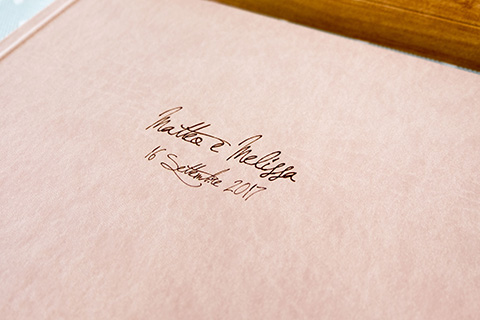 Matteo e Melissa
16 Settembre 2017